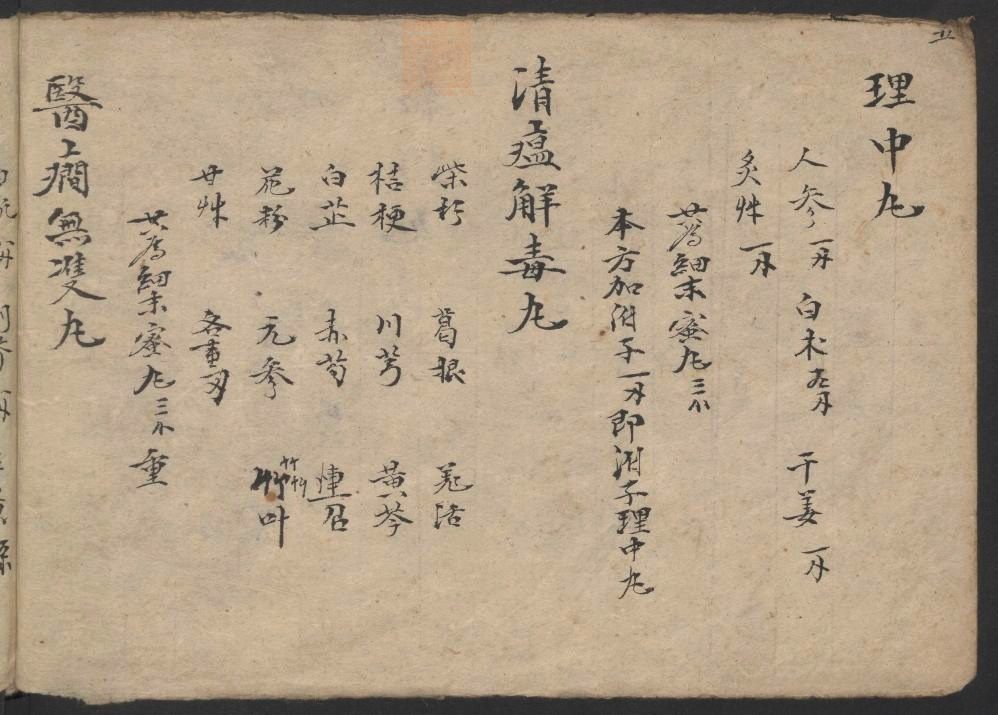 理中丸
人參一刄　白术　干姜一刄
炙艸一刄
共為細末蜜丸三
本方加附子一刄即附子理中丸
清瘟解毒丸
柴胡　葛根　羌活
桔梗　川芎　黃芩
白芷　赤芍　連召
花粉　元參　竹叶
甘艸　各重
共為細末蜜丸三　重
醫癎無雙丸